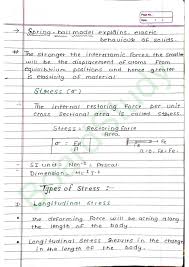 Page No.
Date
→ Spring-ball model explains elastic
behaviour of solids.
→ The stronger the interatomic forces, the smaller
will be the displacement of atoms from
equilibrium positions and hence greater
is elasticity of material.
Stress (σ)
→ The internal restoring force per unit
cross sectional area is called stress.
Stress = Restoring force
area
σ = FR
A
SI unit = Nm⁻² = Pascal
Dimension = ML⁻¹T⁻²
Types of Stress :-
Longitudinal Stress
• The deforming force will be acting along
the length of the body.
• Longitudinal Stress results in the change
in the length of the body.